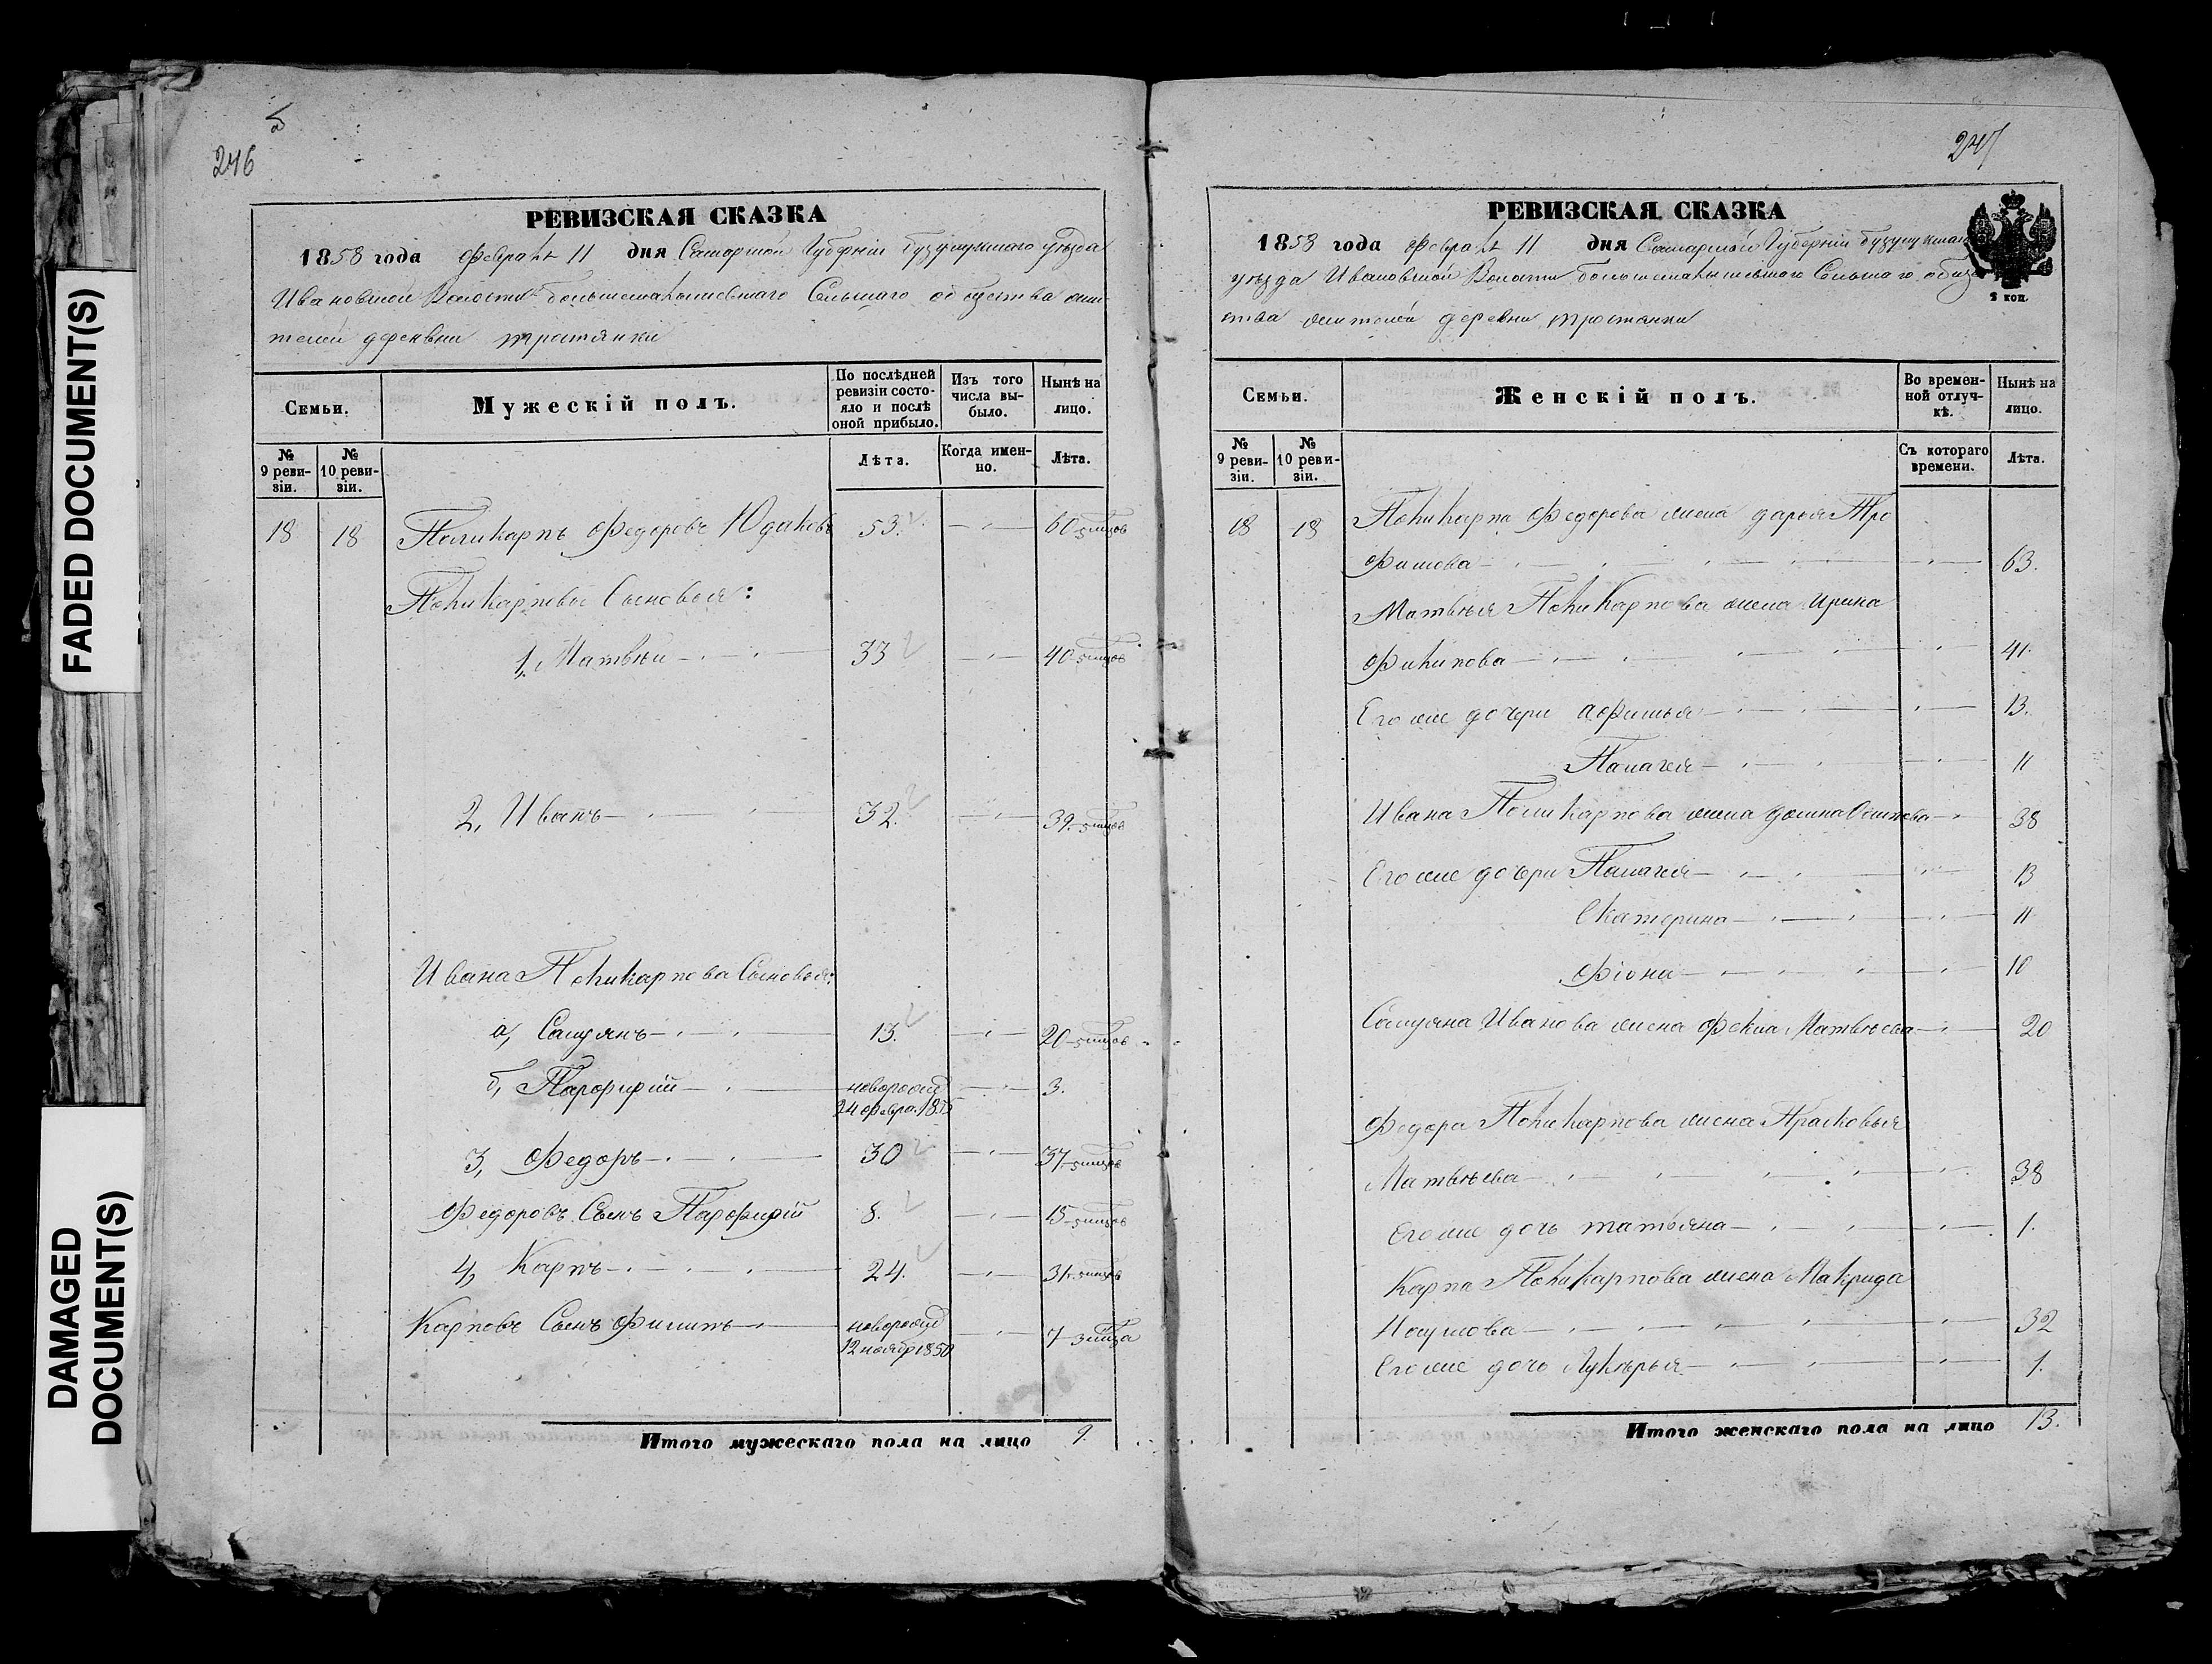 FADED DOCUMENT(S)
DAMAGED
DOCUMENT(S)
246
РЕВИЗСКАЯ СКАЗКА
1858 года февраля 11 дня Самарской Губернии Бузулукского уезда
Ивановской Волости Сельскаго общества жи-
телей деревни тростянки
Семьи.
Мужескій полъ.
По послѣдней
ревизіи состо-
яло и послѣ
оной прибыло.
Изъ того
числа вы-
было.
Нынѣ на
лицо.
№
9 реви-
зіи.
№
10 реви-
зіи.
Лѣта.
Когда имен-
но.
Лѣта.
18 18 Поликарпъ Федоровъ Юдаковъ 53. 60
Поликарповы Сыновья:
1, Матвѣй 33 40
2, Иванъ 32. 39
Ивана Поликарпова Сыновья:
а, Самуянъ 13. 20
б, Парфирий новорожд 3.
24 февра. 1855
3, Федоръ 30 37
Федоровъ Сынъ Парфирій 8. 15
4, Карпъ 24. 31
Карповъ Сынъ Филипъ новорожд 7
12 ноября 1850
Итого мужескаго пола на лицо 9.
247
РЕВИЗСКАЯ СКАЗКА
1858 года февраля 11 дня Самарской Губернии Бузулукскаго
уезда Ивановской Волости Сельскаго общес
тва жителей деревни тростянки
2 коп.
Семьи.
Женскій полъ.
Во времен-
ной отлуч-
кѣ.
Нынѣ на
лицо.
№
9 реви-
зіи.
№
10 реви-
зіи.
Съ котораго
времени.
Лѣта.
18 18 Поликарпа Федорова жена дарья Тро
фимова 63.
Матвѣя Поликарпова жена Ирина
Филипова 41.
Его же дочери афимья 13.
Палагея 11
Ивана Поликарпова жена домна Осипова 38
Его же дочери Палагея 13
Екатерина 11
Фіона 10
Самуяна Иванова жена Фекла Матвѣева 20
Федора Поликарпова жена Прасковья
Матвѣева 38
Его же дочь татьяна 1.
Карпа Поликарпова жена Макрида
Наумова 32
Его же дочь Лукерья 1.
Итого женскаго пола на лицо 13.